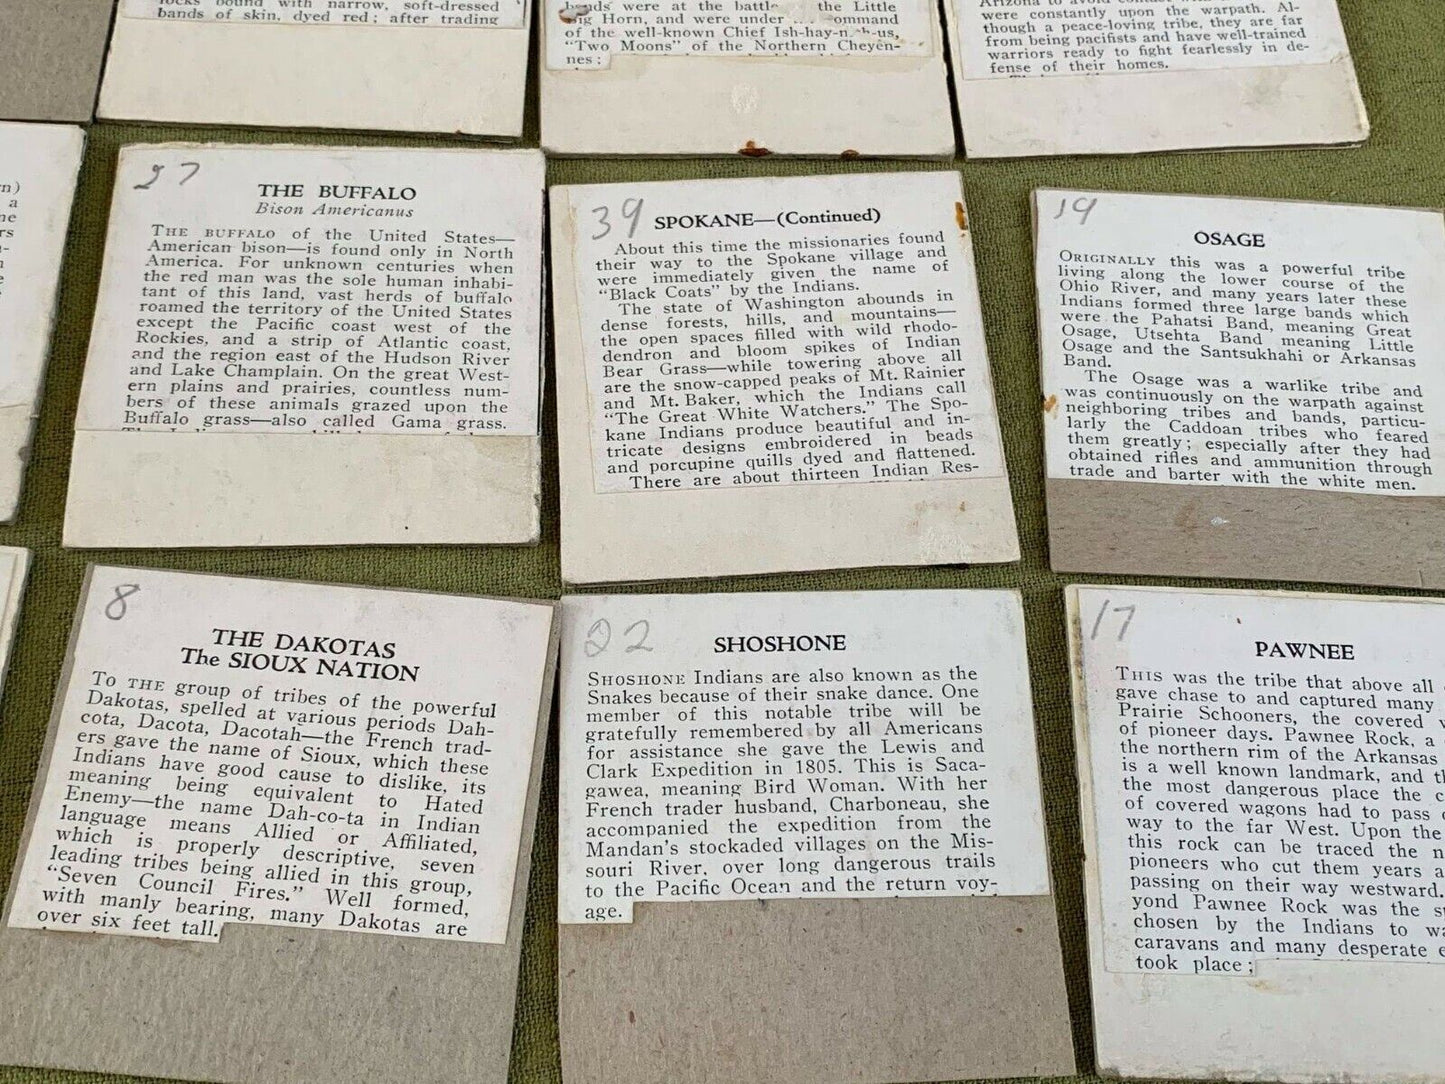 locks bound with narrow, soft-dressed
bands of skin, dyed red; after trading
bands were at the battle the Little
Big Horn, and were under ommand
of the well-known Chief
"Two Moons" of the Northern Cheyen-
nes;
Arizona to avoid contact
were constantly upon the warpath. Al-
though a peace-loving tribe, they are far
from being pacifists and have well-trained
warriors ready to fight fearlessly in de-
fense of their homes.
27
THE BUFFALO
Bison Americanus
THE BUFFALO of the United States—
American bison—is found only in North
America. For unknown centuries when
the red man was the sole human inhabi-
tant of this land, vast herds of buffalo
roamed the territory of the United States
except the Pacific coast west of the
Rockies, and a strip of Atlantic coast,
and the region east of the Hudson River
and Lake Champlain. On the great West-
ern plains and prairies, countless num-
bers of these animals grazed upon the
Buffalo grass—also called Gama grass.
39
SPOKANE—(Continued)
About this time the missionaries found
their way to the Spokane village and
were immediately given the name of
"Black Coats" by the Indians.
The state of Washington abounds in
dense forests, hills, and mountains—
the open spaces filled with wild rhodo-
dendron and bloom spikes of Indian
Bear Grass—while towering above all
are the snow-capped peaks of Mt. Rainier
and Mt. Baker, which the Indians call
"The Great White Watchers." The Spo-
kane Indians produce beautiful and in-
tricate designs embroidered in beads
and porcupine quills dyed and flattened.
There are about thirteen Indian Res-
19
OSAGE
ORIGINALLY this was a powerful tribe
living along the lower course of the
Ohio River, and many years later these
Indians formed three large bands which
were the Pahatsi Band, meaning Great
Osage, Utsehta Band meaning Little
Osage and the Santsukhahi or Arkansas
Band.
The Osage was a warlike tribe and
was continuously on the warpath against
neighboring tribes and bands, particu-
larly the Caddoan tribes who feared
them greatly; especially after they had
obtained rifles and ammunition through
trade and barter with the white men.
8
THE DAKOTAS
The SIOUX NATION
TO THE group of tribes of the powerful
Dakotas, spelled at various periods Dah-
cota, Dacota, Dacotah—the French trad-
ers gave the name of Sioux, which these
Indians have good cause to dislike, its
meaning being equivalent to Hated
Enemy—the name Dah-co-ta in Indian
language means Allied or Affiliated,
which is properly descriptive, seven
leading tribes being allied in this group,
"Seven Council Fires." Well formed,
with manly bearing, many Dakotas are
over six feet tall.
22
SHOSHONE
SHOSHONE Indians are also known as the
Snakes because of their snake dance. One
member of this notable tribe will be
gratefully remembered by all Americans
for assistance she gave the Lewis and
Clark Expedition in 1805. This is Saca-
gawea, meaning Bird Woman. With her
French trader husband, Charboneau, she
accompanied the expedition from the
Mandan's stockaded villages on the Mis-
souri River, over long dangerous trails
to the Pacific Ocean and the return voy-
age.
17
PAWNEE
THIS was the tribe that above all
gave chase to and captured many
Prairie Schooners, the covered
of pioneer days. Pawnee Rock, a
the northern rim of the Arkansas
is a well known landmark, and th
the most dangerous place the c
of covered wagons had to pass
way to the far West. Upon the
this rock can be traced the n
pioneers who cut them years a
passing on their way westward.
yond Pawnee Rock was the s
chosen by the Indians to wa
caravans and many desperate e
took place;